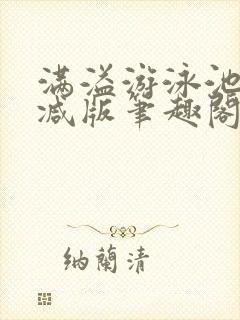 满溢游泳池
减版笔趣阁
纳兰清